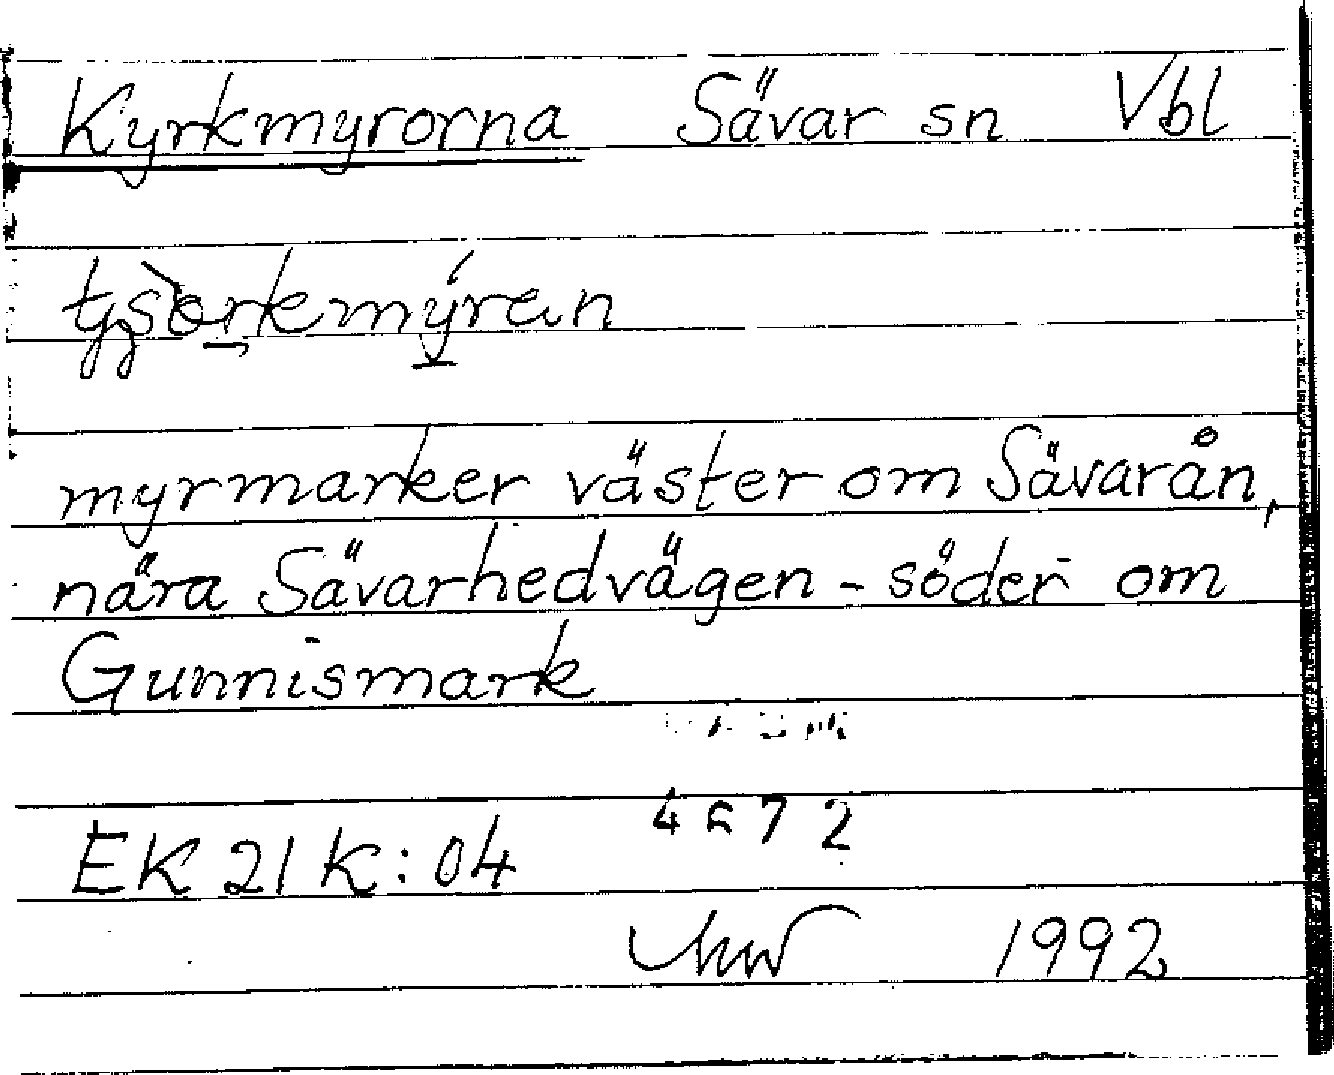 Kyrkmyrorna Sävar sn Vbl
myrmarker väster om Sävarån,
nära Sävarhedvägen - söder om
Gunnismark
EK 21 K : 04
1992